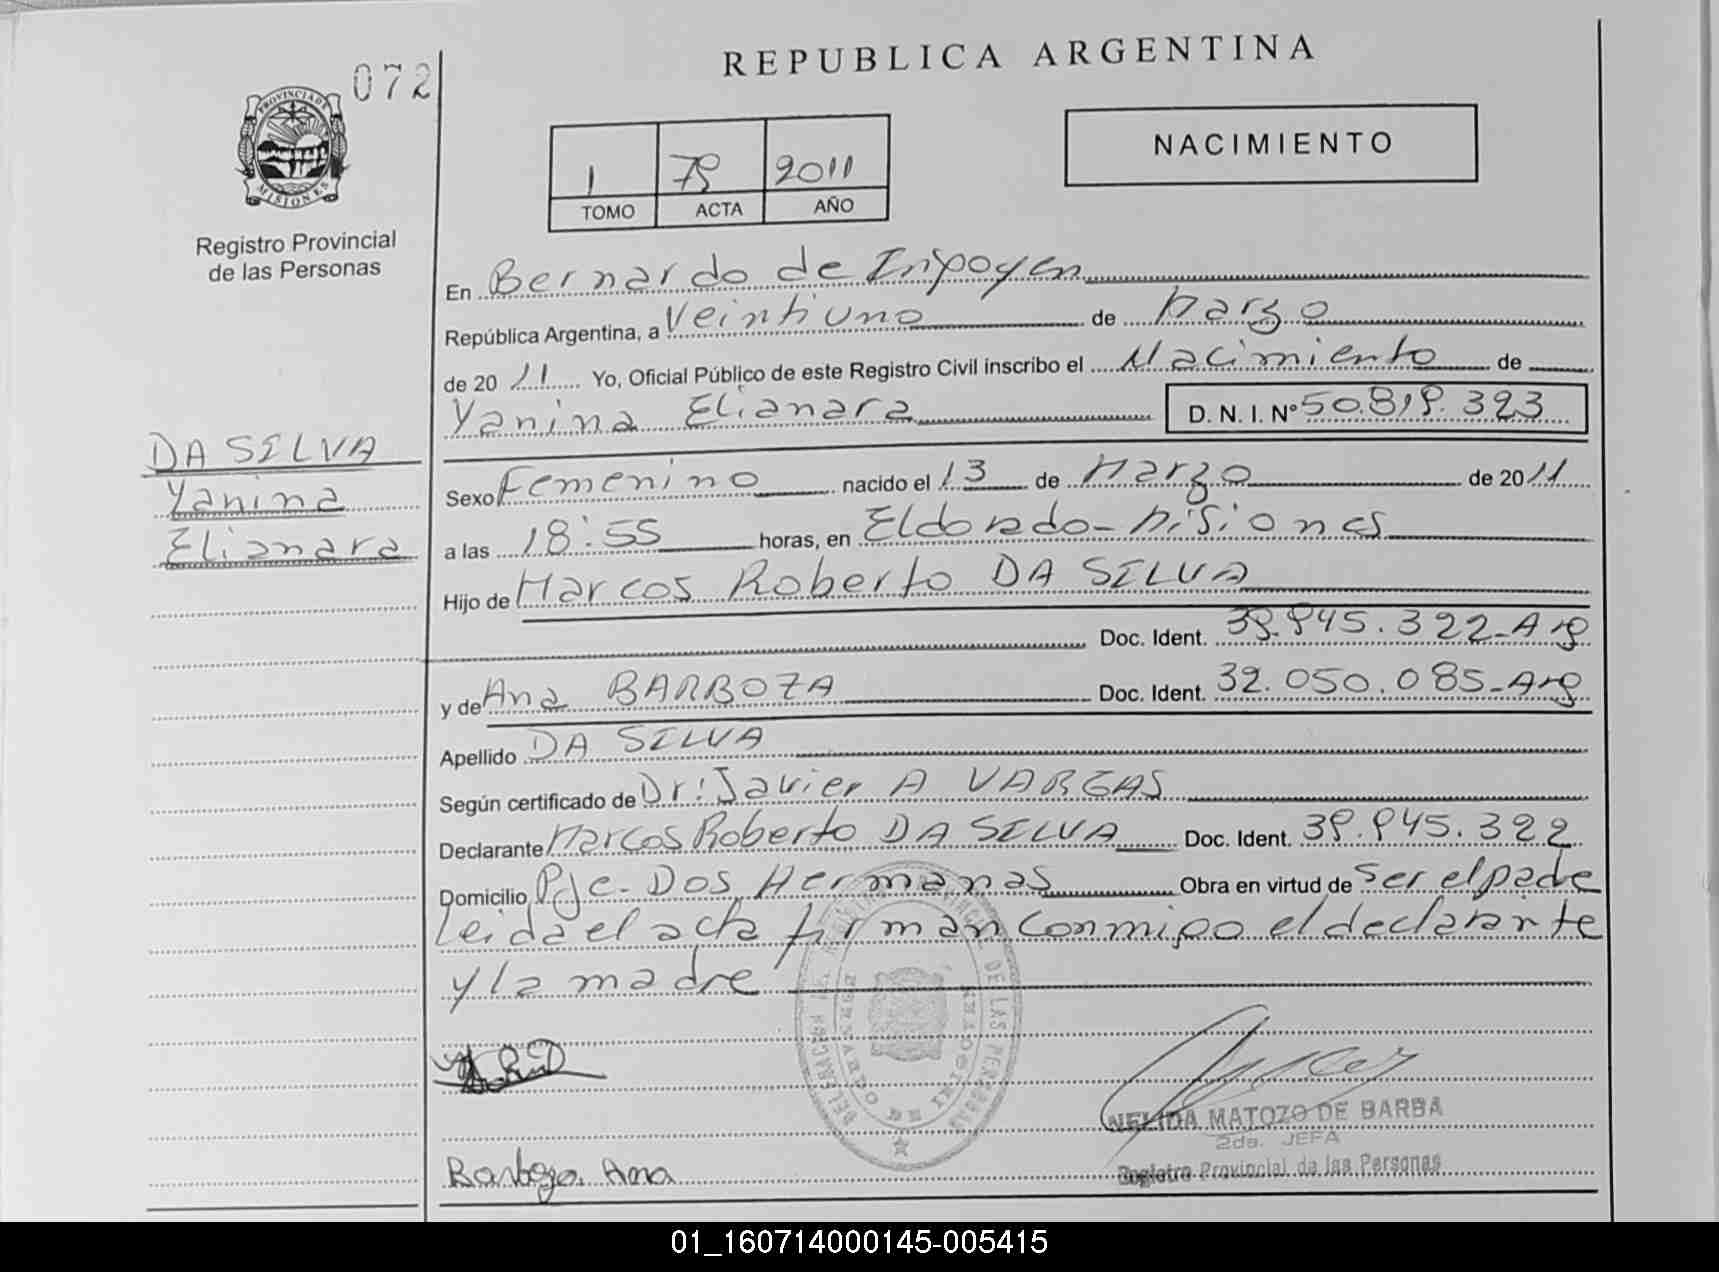 072
REPUBLICA ARGENTINA
PROVINCIA DE MISIONES
Registro Provincial
de las Personas
1 79 2011
TOMO ACTA AÑO
NACIMIENTO
En Bernardo de Irigoyen
República Argentina, a Veintiuno de Marzo
de 2011 Yo, Oficial Público de este Registro Civil inscribo el Nacimiento de
Yanina Elianara D. N. I. Nº 50.819.323
DA SILVA
Yanina
Elianara
Sexo Femenino nacido el 13 de Marzo de 2011
a las 18:55 horas, en Eldorado-Misiones
Hijo de Marcos Roberto DA SILVA
Doc. Ident. 945.322-Arg
y de Ana BARBOZA Doc. Ident. 32.050.085-Arg
Apellido DA SILVA
Según certificado de Dr: Javier A VARGAS
Declarante Marcos Roberto DA SILVA Doc. Ident. 945.322
Domicilio Pje. Dos Hermanas Obra en virtud de ser el padre
Leida el acta firman conmigo el declarante
y la madre
NELIDA MATOZO DE BARBA
2da. JEFA
Registro Provincial de las Personas
Barboza Ana
01_160714000145-005415